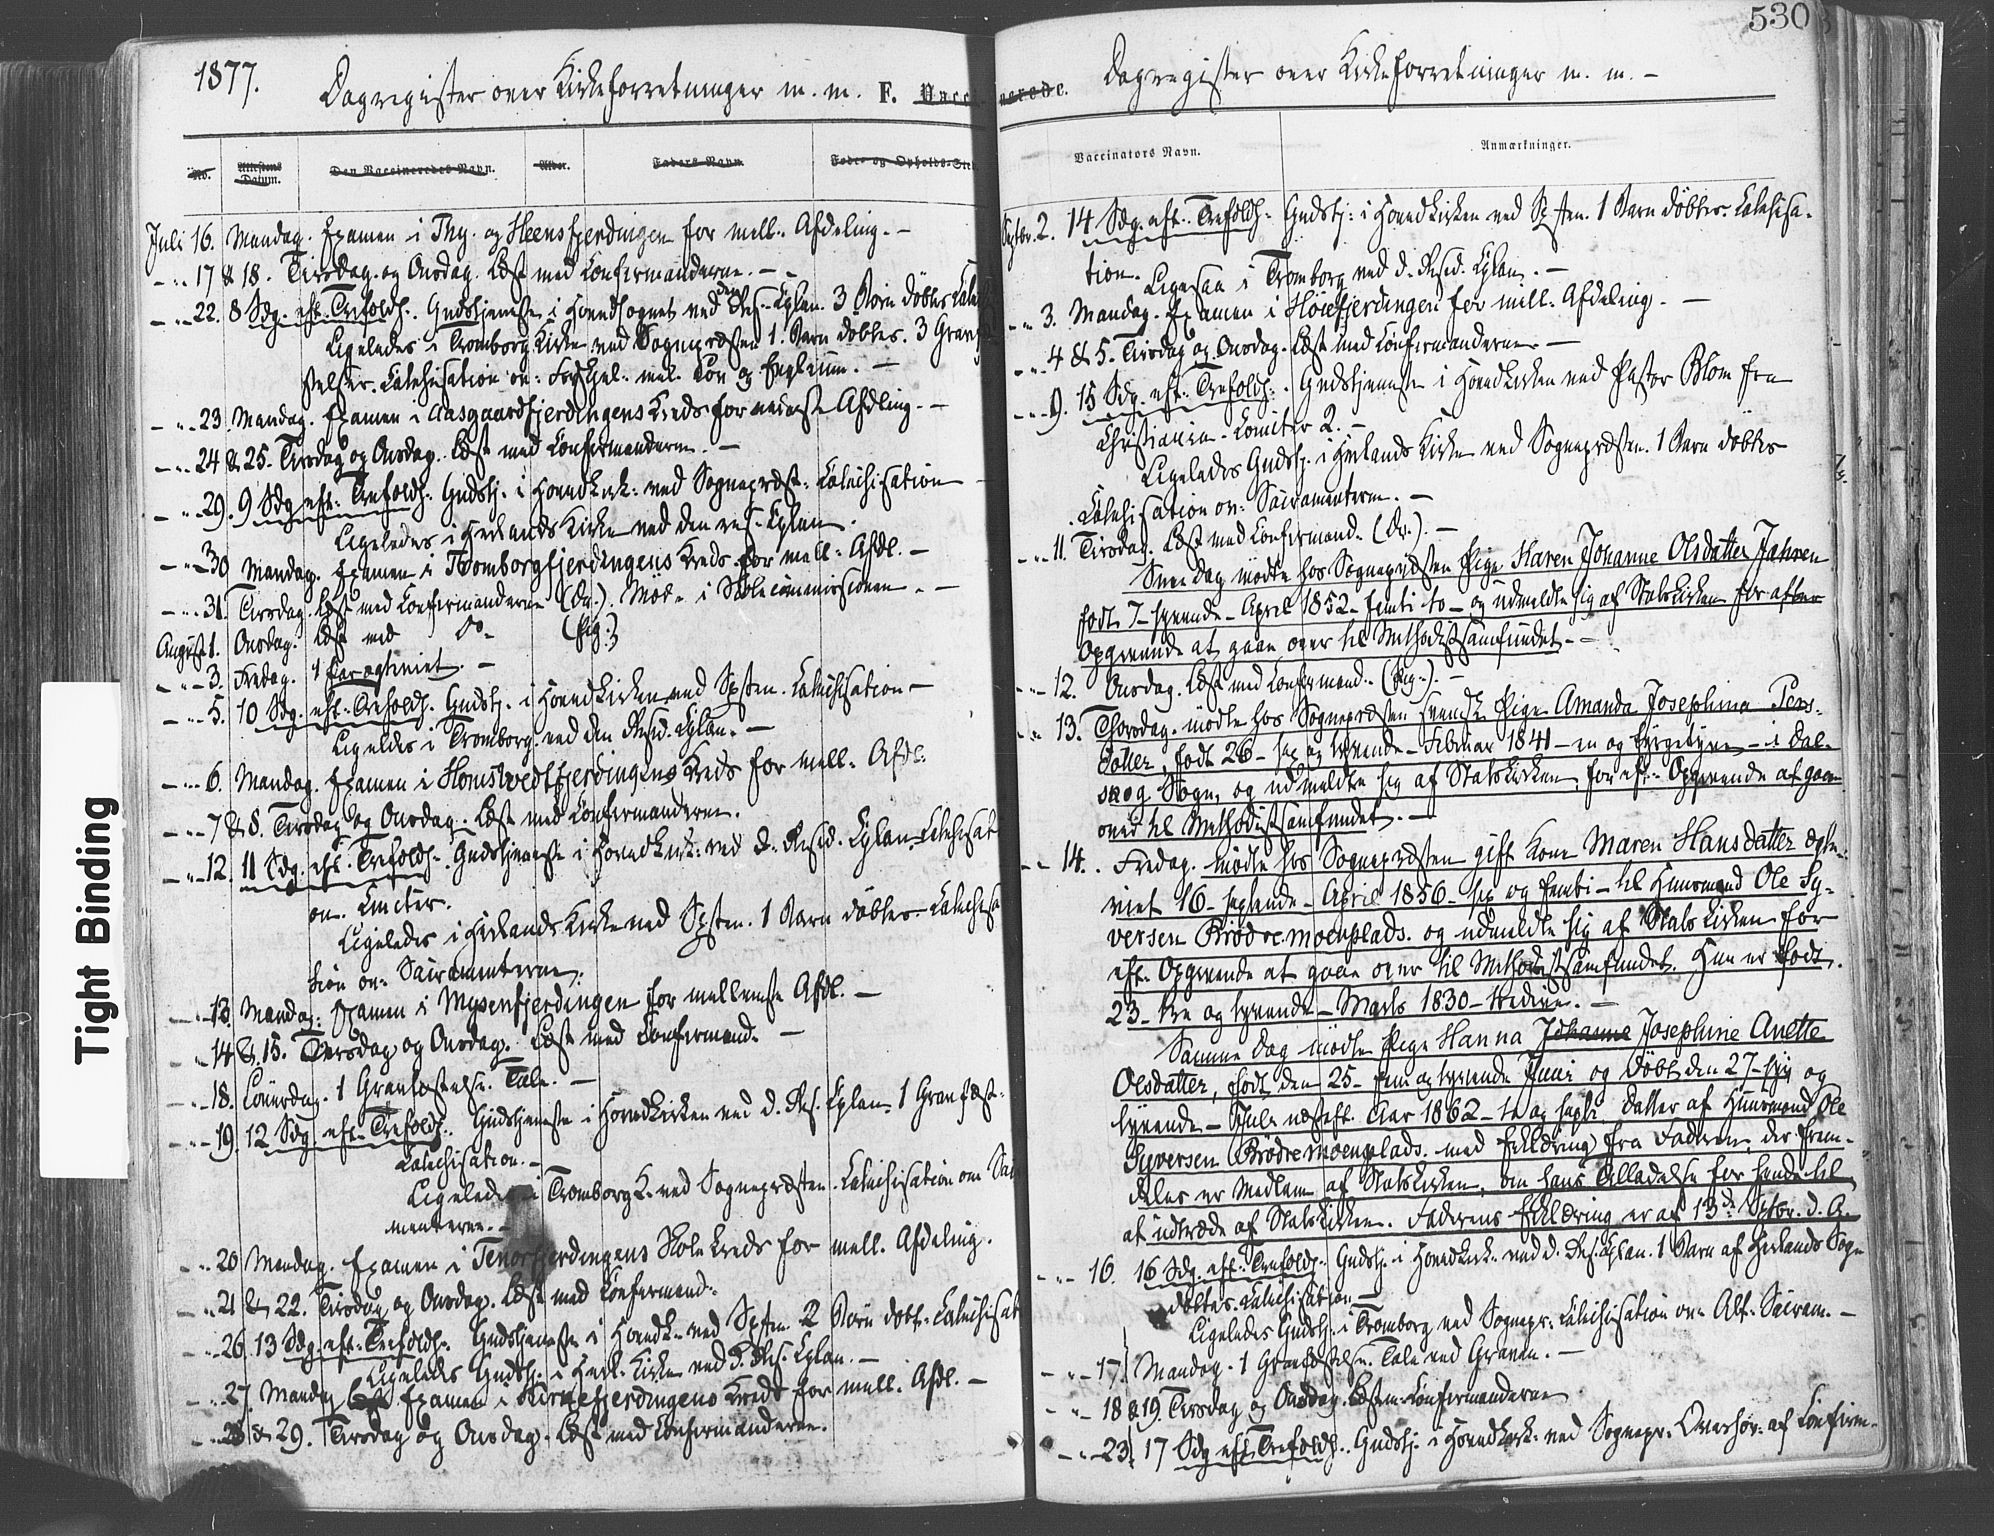 1877.
Dagregister over Kirkeforretninger m. m. F. Vacc
No.
Attestens Datum.
Den Vaccineredes Navn.
Alder.
Faders Navn.
Føde- og Opholds-Sted
Juli 16. Mandag. Examen i Thy. og Heensfjerdingen for mell. Afdeling. -
- " - 17 & 18. Tirsdag og Onsdag. Læst med Confirmanderne. -
- " - 22. 8 Sdg. eft. Trefoldh. Gudstjeneste i Hovedsognet ved den Res. Cplan. 3 Børn døbtes.
Ligeledes i Tromborg Kirke ved Sognepræsten 1. Barn døbtes. 3 Gravfæ-
stelser. Catechisation
- " - 23. Mandag. Examen i Aasgaardfjerdingens Kreds for nederste Afdling. -
- " - 24 & 25. Tirsdag og Onsdag. Læst med Confirmanderne. -
- " - 29. 9 Sdg. eft. Trefoldh. Gudstj. i Hovedkirk. ved Sognepræst. Catechisation
Ligeledes i Herlands Kirke ved den res. Cplan.
- " - 30 Mandag. Examen i Tromborgfjerdingens Kreds for mell. Afdl. -
- " - 31. Tirsdag. Læst med Confirmanderne (Dr.). Møde i Skolecommissionen. -
August 1. Onsdag. Læst med Do- (Pig.)
- " - 3. Fredag. 1 Par ægteviet. -
- " - 5. 10 Sdg. eft. Trefoldh. Gudstj. i Hovedkirken ved Spsten. Catechisation -
Ligeledes i Tromborg ved den Resid. Cplan. -
- " - 6. Mandag. Examen i Homstvedtfjerdingens Kreds for mell. Afdl.
- " - 7 & 8. Tirsdag og Onsdag. Læst med Confirmanderne.
- " - 12. 11 Sdg. eft. Trefoldh. Gudstjeneste i Hovedkirk. ved d. Resid. Cplan. Catechisat
Ligeledes i Herlands Kirke ved Spsten. 1 Barn døbtes. Catechisa
tion om Sacramenterne.
- " - 13. Mandag. Examen i Mysenfjerdingen for mellemste Afdl. -
- " - 14 & 15. Tirsdag og Onsdag. Læst med Confirmand. -
- " - 18. Løverdag. 1 Gravfæstelse. Tale. -
- " - 19. 12 Sdg. eft. Trefoldh. Gudstjeneste i Hovedkirken ved d. Res. Cplan. 1 Gravfæst-
Catechisation. -
Ligeledes i Tromborg K. ved Sognepræsten. Catechisation om Sac
menterne. -
- " - 20 Mandag. Examen i Tenorfjerdingens Skolekreds for mell. Afdeling.
- " - 21 & 22. Tirsdag og Onsdag. Læst med Confirmand.
- " - 26. 13 Sdg. eft. Trefoldh. Gudstjeneste i Hovedk. ved Spsten. 2 Børn døbt. Catechisat
Ligeledes Gudstj. i Herl. Kirke ved d. Res. Cplan. -
- " - 27. Mandag Examen i Kirkefjerdingens Kreds for mell. Afdl. -
- " - 28 & 29. Tirsdag og Onsdag. Læst med Confirmanderne.
Tight Binding
530
nerede. Dagregister over Kirkeforretninger m. m. -
Vaccinators Navn.
Anmærkninger.
Septbr. 2. 14 Sdg. eft. Trefoldh. Gudstj. i Hovedkirken ved Spsten. 1 Barn døbtes. Catechisa-
tion. Ligesaa i Tromborg ved d. Resid. Cplan. -
- " - 3. Mandag. Examen i Høiefjerdingen for mell. Afdeling. -
- " - 4 & 5. Tirsdag og Onsdag. Læst med Confirmanderne. -
- " - 9. 15 Sdg. eft. Trefoldh. Gudstjeneste i Hovedkirken ved Pastor Blom fra
Christiania.
Ligeledes Gudstj. i Herlands Kirke ved Sognepræsten. 1 Barn døbtes
Catechisation om Sacramenterne. -
- " - 11. Tirsdag. Læst med Confirmand. (Dr.). -
Samme Dag mødte hos Sognepræsten Pige Karen Johanne Olsdatter Jahren
født 7- syvende - April 1852 - femti to - og udmeldte sig af Statskirken for efter
Opgivende at gaae over til Methodistsamfundet. -
- " - 12. Onsdag. Læst med Confirmand. (Pig.). -
- " - 13. Thorsdag. mødte hos Sognepræsten svensk Pige Amanda Josephina Pers-
dotter, født 26 - sex og tyvende - Februar 1841 - en og fyrgetyve - i Dal-
skog Sogn, og udmeldte sig af Statskirken, for eft. Opgivende at gaae
over til Methodistsamfundet. -
- " - 14. Fredag. mødte hos Sognepræsten gift Kone Maren Hansdatter ægte-
viet 16 - sextende - April 1856 - sex og femti - til Huusmand Ole Sy-
versen Brødremoenplads. og udmeldte sig af Statskirken for
eft. Opgivende at gaae over til Methodistsamfundet. Hun er født
23 - tre og tyvende - Marts 1830 - tredive. -
Samme Dag mødte Pige Hanna Johanne Josephine Anette
Olsdatter, født den 25 - fem og tyvende Juni og døbt den 27 - syv og
tyvende - Juli næsteft. Aar 1862 - to og sexti, Datter af Huusmand Ole
Syversen Brødremoenplads. med Erklæring fra Faderen, der frem-
deles er Medlem af Statskirken, om hans Tilladelse for hende til
at udtræde af Statskirken. Faderens Erklæring er af 13de Septbr. d. A.
- " - 16. 16 Sdg. eft. Trefoldh. Gudstj. i Hovedkirk. ved d. Res. Cplan. 1 Barn af Herlands Sogn
døbtes. Catechisation -
Ligeledes Gudstj. i Tromborg ved Sognepr. Catechisation om Alt. Sacram. -
- " - 17. Mandag. 1 Gravfæstelse. Tale ved Graven. -
- " - 18 & 19. Tirsdag og Onsdag. Læst m. Confirmanderne
- " - 23. 17 Sdg. eft. Trefoldh. Gudstj. i Hovedkirk. ved Sognepr. Overhør. af Confirm-